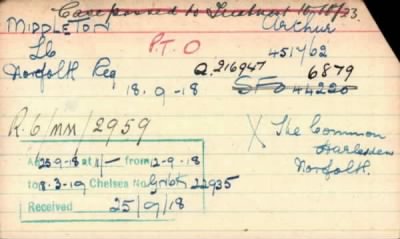 Case passed to Treasury 10/10/23.
MIDDLETON Arthur
Lb 4517/02
P.T.O
Norfolk Reg Q.216947 6879
18.9-18 SFO 44220
R.6/MM/2959
X The Common
Harleston
Norfolk.
25-9-18 at 4/- from 12-9-18
to 18.3-19 Chelsea No. 22935
Received 25/9/18